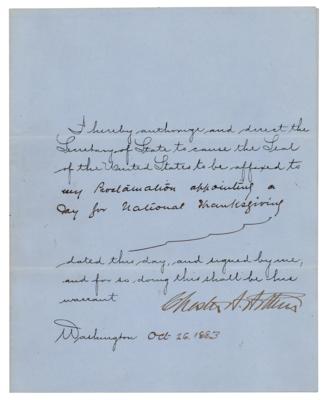 I hereby authorize and direct the
Secretary of State to cause the Seal
of the United States to be affixed to
my Proclamation appointing a
Day for National Thanksgiving
dated this day, and signed by me,
and for so doing this shall be his
warrant
Chester A. Arthur
Washington Oct 26. 1883